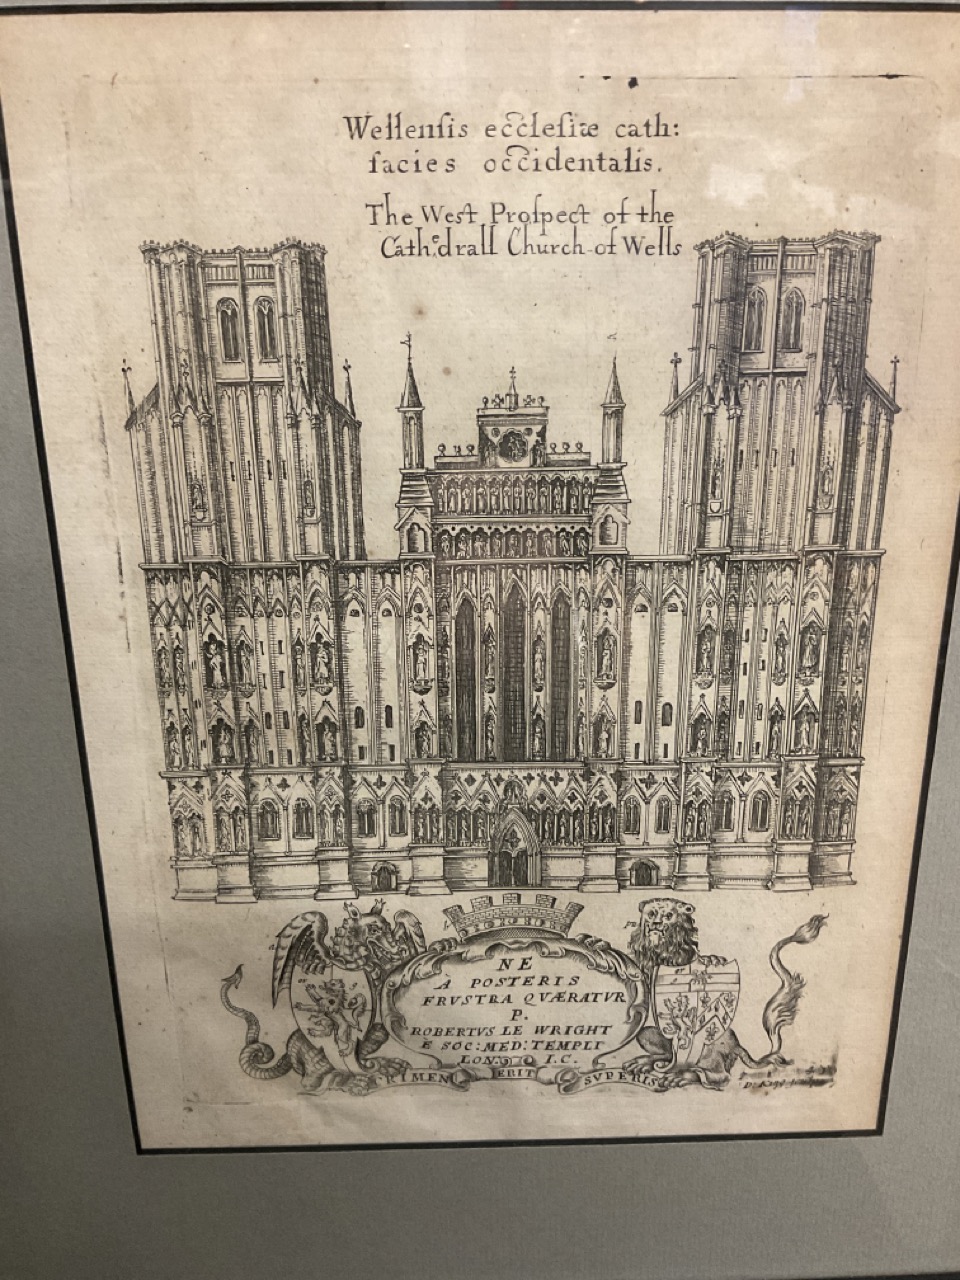 Wellensis ecclesiæ cath:
facies occidentalis.
The West Prospect of the
Cathedrall Church of Wells
NE
A POSTERIS
FRVSTRA QVÆRATVR
P.
ROBERTVS LE WRIGHT
E SOC: MED: TEMPLI
LON: I.C.
CRIMEN ERIT SVPERIS
D. King